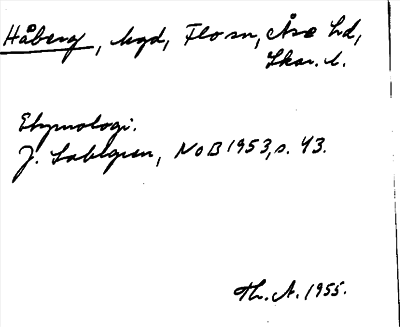 Håberg, bygd, Flo sn, Åse hd,
Skar. l.
Etymologi.
J. Sahlgren, NoB 1953, s. 43.
Th. A. 1955.